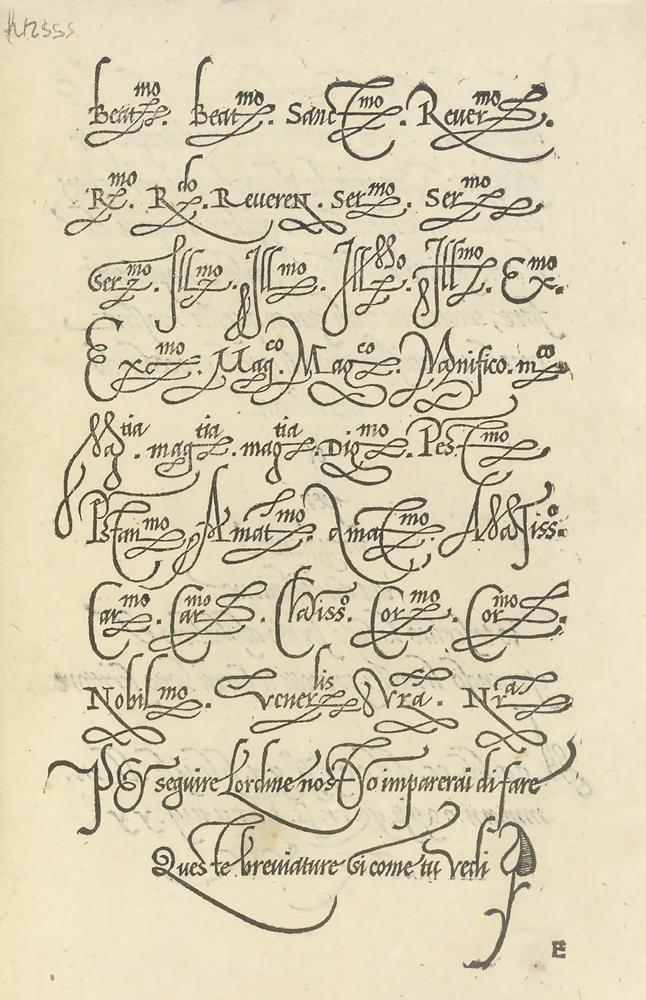 Beat^mo. Beat^mo. Sanct^mo. Rever^mo.
R^mo. R^do. Reueren. Ser^mo. Ser^mo.
Ser^mo. Ill^mo. Ill^mo. Ill^mo. Ill^mo. Ex^mo.
Exc^mo. Mag^co. Mag^co. Manifico. m^co
Ma^tia. mag^tia. mag^tia. Dig^mo. Pest^mo
Pstan^mo Amat^mo amat^mo Amatiss^o.
Car^mo. Car^mo. Chaiss^o. Cor^mo. Cor^mo.
Nobil^mo. Vener^lis Vra. Nr^a
seguire l'ordine nostro imparerai di fare
Queste breviature si come tu vedi
E